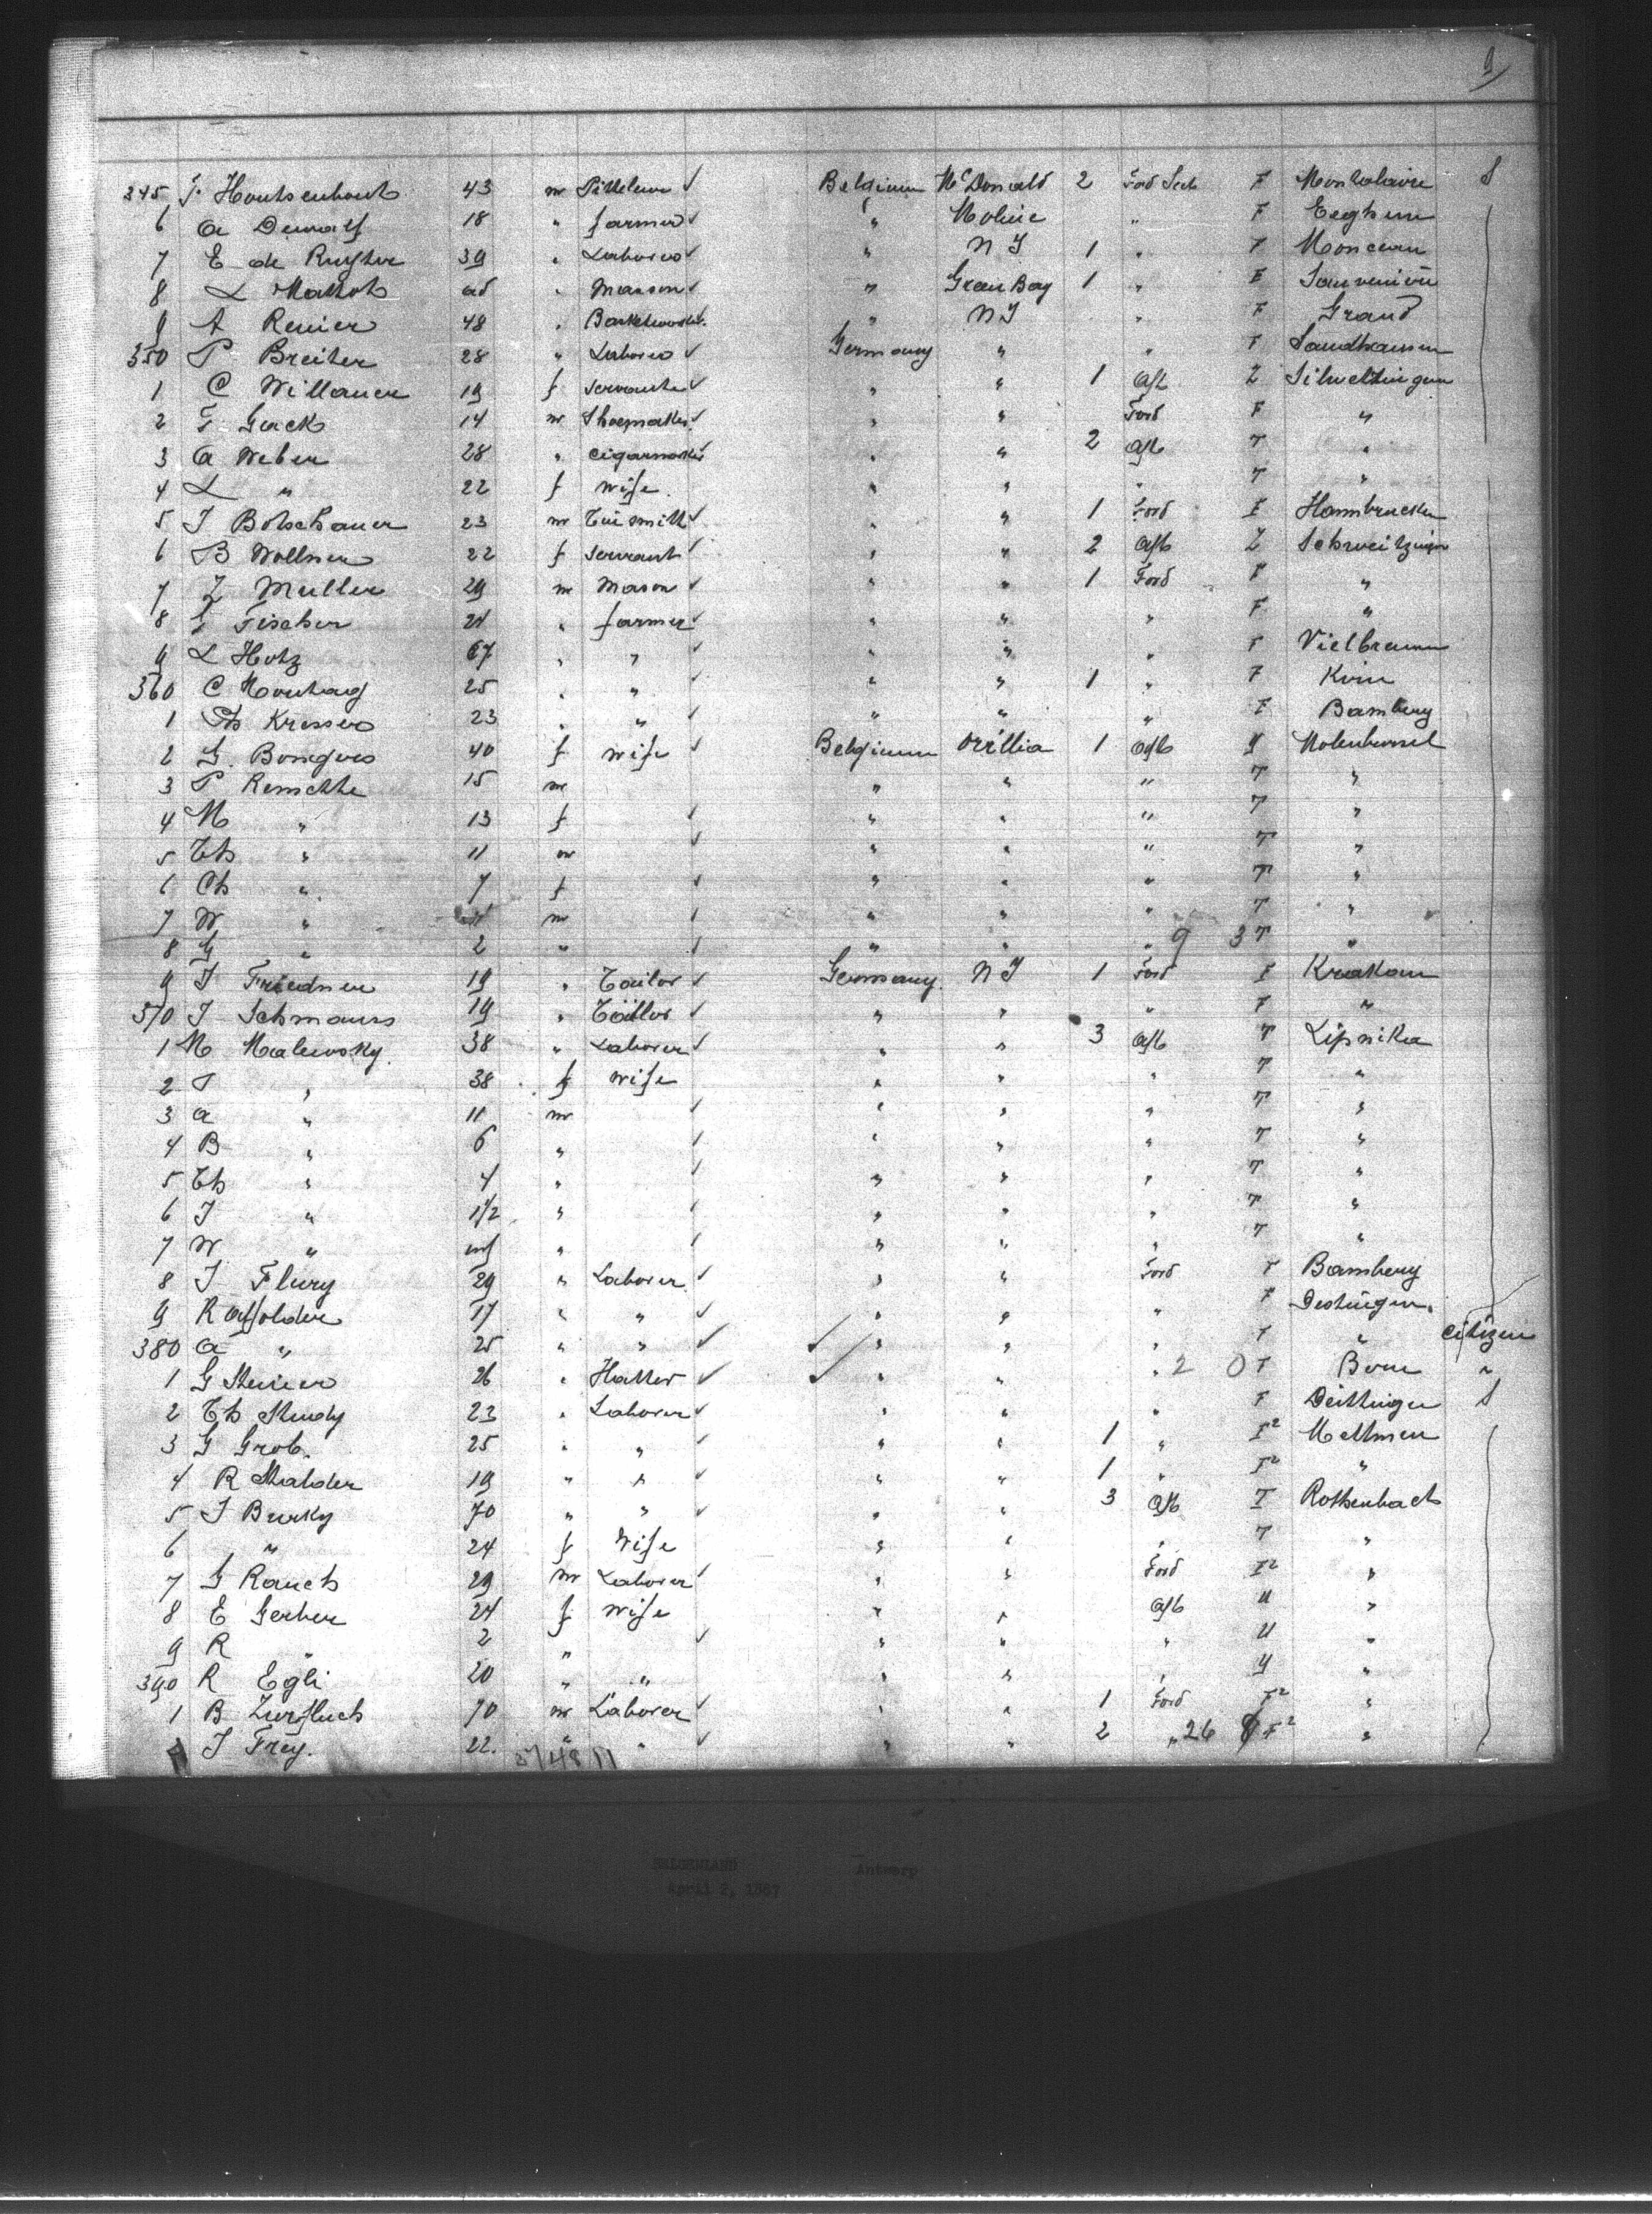 9
345 Houtsenhout 43 m ✓ Belgium McDonald 2 Ford Sech F
6 A Dewalf 18 " farmer ✓ " Moline " F Eeghem
7 E de Ruyter 39 " Laborer ✓ " N Y 1 " F Monceau
8 L Mattot " Masson ✓ " Green Bay 1 " F Sauveniere
9 A Renier 48 " " N Y " F Grand
350 P Breiter 28 " Laborer ✓ Germany " " F Sandhausen
1 C Willauer 19 f servante ✓ " " 1 Aft Z
2 F Gack 14 m Shoemaker ✓ " " Ford F "
3 A Weber 28 " cigarmaker ✓ " " 2 Aft T "
4 L " 22 f wife " " " T "
5 J Botschauer 23 m Tinsmith ✓ " " 1 Ford F Hambrucken
6 B Wollner 22 f servant ✓ " " 2 Aft Z Schweitzingen
7 Z Muller 29 m Mason ✓ " " 1 Ford F "
8 Fischer 21 " farmer ✓ " " " F "
9 L Hotz 67 " " ✓ " " " F Vielbrunn
360 C Montag 25 " " ✓ " " 1 " F Kirn
1 Ph Kresser 23 " " ✓ " " " F Bamberg
2 G. Bongers 40 f wife ✓ Belgium Orillia 1 Aft Y Molenbersel
3 P Remette 15 m " " " T "
4 M " 13 f ✓ " " " T "
5 Th " 11 m ✓ " " " T "
6 Ch " 7 f ✓ " " " T "
7 W " m ✓ " " " T "
8 G " 2 " ✓ " " " 9 3 T "
9 J Friedner 19 " Tailor ✓ Germany N Y 1 Ford F Krakau
370 J Schmauss 19 " Taillor ✓ " " " F "
1 M Malewsky 38 " Laborer ✓ " " 3 Aft T Lipnika
2 " 38 f wife " " " T "
3 A " 11 m ✓ " " " T "
4 B " 6 " ✓ " " " T "
5 Th " 4 " ✓ " " " T "
6 J " 1 1/2 " ✓ " " " T "
7 W " inf " ✓ " " " T "
8 J Flury 29 " Laborer ✓ " " Ford F Bamberg
9 R Affolder 17 " " ✓ " " " F
380 A " 25 " " ✓ ✓ " " " F " citizen
1 G Steiner 26 " Hatter ✓ ✓ " " " 2 0 F Bern "
2 Th Study 23 " Laborer ✓ " " " F Deittingen
3 G Grob. 25 " " ✓ " " 1 " F2 Mettmen
4 R Stalder 19 " " ✓ " " 1 " F2 "
5 J Burky 70 " " ✓ " " 3 Aft T Rothenbach
6 " 24 f Wife " " " T "
7 G Rauch 29 m Laborer ✓ " " Ford F2 "
8 E Gerber 24 f wife " " Aft U "
9 R " 2 " ✓ " " " U "
390 R Egli 20 " " " " " Y "
1 B Zurfluch 70 m Laborer ✓ " " 1 Ford F2 "
J Frey. 22. " " ✓ " " 2 " 26 F2 "
BELGENLAND Antwerp
April 2, 1887